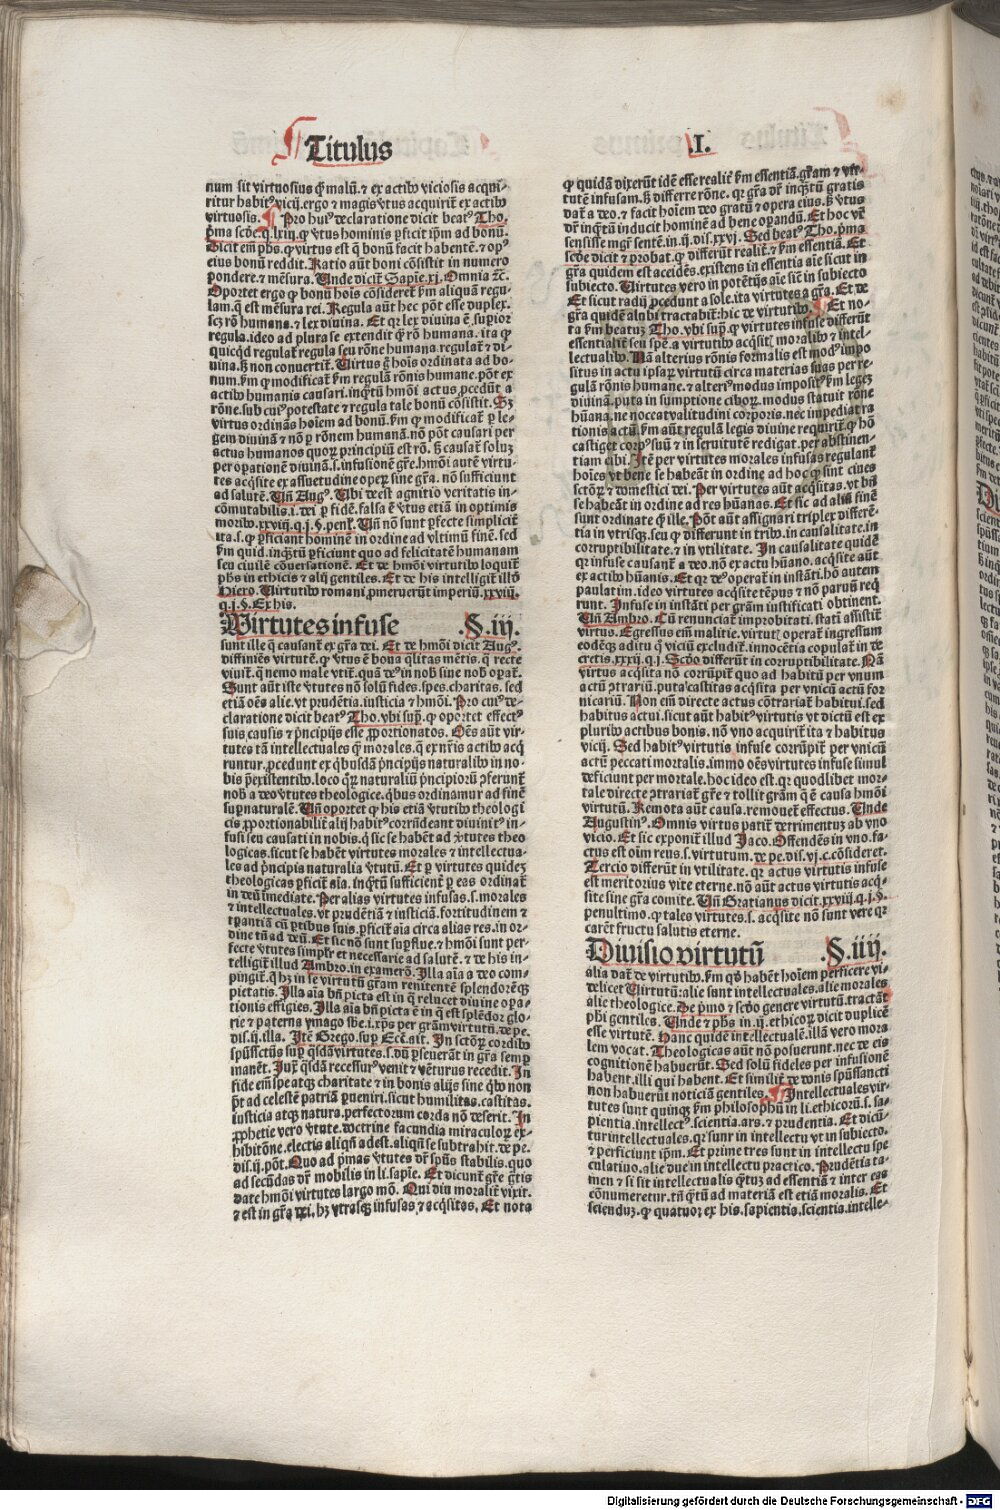 Titulus
.I.
num sit virtuosius q̄ malū. ⁊ ex actiƀ viciosis acqui-
ritur habitꝰ vicij. ergo ⁊ magis v̓tus acquiriť ex actiƀ
virtuosis. Pro huiꝰ declaratione dicit beatꝰ Tho.
p̓ma sc̄de. q. lxiij. ꝙ v̓tus hominis ꝑficit ip̄m ad bonū.
Dicit em̄ ph̄s. ꝙ virtus est q̄ bonū facit habentē. ⁊ opꝰ
eius bonū reddit. Ratio aūt boni cōsistit in numero
pondere. ⁊ mēsura. Unde dicit̄ Sapīe. xj. Omnia ⁊c̄.
Oportet ergo ꝙ bonū hoīs cōsideret̄ ẜm aliquā regu-
lam. q̄ est mēsura rei. Regula aūt hec pōt esse duplex.
scꝫ rō humana. ⁊ lex diuina. Et qꝛ lex diuina ē suꝑior
regula. ideo ad plura se extendit q̄ꝫ rō humana. ita ꝙ
quicq̄d regulat̄ regula seu rōne humana. regulat̄ ⁊ di-
uina. sꝫ non conuertit̄. Uirtus g̊ hoīs ordinata ad bo-
num. ẜm ꝙ modificat̄ ẜm regulā rōnis humane. pōt ex
actiƀ humanis causari. inq̄ꝫtū hmōi actus ꝓcedūt a
rōne. sub cuiꝰ potestate ⁊ regula tale bonū cōsistit. Sꝫ
virtus ordinās hoīem ad bonū. ẜm ꝙ modificat̄ ꝑ le-
gem diuinā ⁊ nō ꝑ rōnem humanā. nō pōt causari per
actus humanos quoꝝ principiū est rō. sꝫ causat̄ soluꝫ
per oꝑationē diuinā. s. infusionē gr̄e. hmōi autē virtu-
tes acq̄site ex assuetudine operꝝ sine gr̄a. nō sufficiunt
ad salutē. Un̄ Augꝰ. Ubi deest agnitio veritatis in-
cōmutabilis. i. dei ꝑ fidē. falsa ē v̓tus etiā in optimis
moriƀ. xxviij. q. j. §. penl̓t. Un̄ nō sunt ꝑfecte simplicit̄
ita. s. ꝙ ꝑficiant hominē in ordine ad vltimū finē. sed
ẜm quid. inq̄ꝫtū ꝑficiunt quo ad felicitatē humanam
seu ciuilē cōuersationē. Et de hmōi virtutiƀ loquit̄
ph̄s in ethicis ⁊ alij gentiles. Et de his intelligit̄ illđ
Hiero. Uirtutiƀ romani ꝓmeruerūt imperiū. xxviij.
q. j. §. Ex his.
Uirtutes infuse .§. iij.
sunt ille q̄ causant̄ ex gr̄a dei. Et de hmōi dicit Augꝰ.
diffiniēs virtutē. ꝙ v̓tus ē bona q̄litas mētis. q̄ recte
viuit̄. q̄ nemo male vtit̄. quā deꝰ in noƀ sine noƀ oꝑat̄.
Sunt aūt iste v̓tutes nō solū fides. spes. charitas. sed
etiā oēs alie. vt prudētia. iusticia ⁊ hmōi. Pro cuiꝰ de-
claratione dicit beatꝰ Tho. vbi sup̄. ꝙ oportet effectꝰ
suis causis ⁊ p̓ncipijs esse ꝓportionatos. Oēs aūt vir-
tutes tā intellectuales q̄ morales. q̄ ex nr̄is actiƀ acq̄
runtur. ꝓcedunt ex q̄busdā p̓ncipijs naturaliƀ in no-
bis p̄existentiƀ. loco qͦꝝ naturaliū p̓ncipioꝝ ꝯferunt̄
nob̓ a deo v̓tutes theologice. q̄bus ordinamur ad finē
suꝑnaturalē. Un̄ oportet ꝙ his etiā v̓tutiƀ theologi
cis ꝓportionabilit̄ alij habitꝰ corrn̄deant diuinitꝰ in-
fusi seu causati in nobis. q̄ sic se habēt ad v̓tutes theo
logicas. sicut se habēt virtutes morales ⁊ intellectua-
les ad p̓ncipia naturalia v̓tutū. Et ꝑ virtutes quidez
theologicas ꝑficit̄ aīa. inq̄ꝫtū sufficient̄ ꝑ eas ordinat̄
in deū īmediate. Per alias virtutes infusas. s. morales
⁊ intellectuales. vt prudētiā ⁊ iusticiā. fortitudinem ⁊
tꝑantiā cū ꝑtibus suis. ꝑficit̄ aīa circa alias res. in or-
dine tn̄ ad deū. Et sic nō sunt suꝑflue. ⁊ hmōi sunt per-
fecte v̓tutes simpl̓r et necessarie ad salutē. ⁊ de his in-
telligit̄ illud Ambro. in examerō. Illa aīa a deo com-
pingit̄. q̄ hꝫ in se virtutū gr̄am renitentē splendorēqꝫ
pietatis. Illa aīa bn̄ picta est in q̄ relucet diuine oꝑa-
tionis effigies. Illa aīa bn̄ picta ē in q̄ est splēdor glo-
rie ⁊ paterna ymago sb̄e. i. xp̄s per gr̄am virtutū. de pe.
dis. ij. illa. Itē Grego. sup̄ Ecē. ait. In sctōꝝ cordiƀ
spūssctūs sup̄ q̄sdā virtutes. s. dū ꝑseuerāt in gr̄a semꝑ
manēt. Iuxͣ q̄sdā recessurꝰ venit ⁊ vēturus recedit. In
fide em̄ spe atqꝫ charitate ⁊ in bonis alijs sine q̄bꝰ non
pōt ad celestē patriā ꝑueniri. sicut humilitas. castitas.
iusticia atqꝫ natura. perfectorum corda nō deserit. In
ꝓphetie vero v̓tute. doctrine facundia miraculoꝝ ex-
hibitōne. electis aliqn̄ adest. aliqn̄ se subtrahit. de pe.
dis. ij. pōt. Quo ad p̓mas v̓tutes dr̄ spūs stabilis. quo
ad secūdas dr̄ mobilis in li. sapīe. Et dicunt̄ gr̄e gr̄tis
date hmōi virtutes largo mō. Qui diu moralit̄ vixit.
⁊ est in gr̄a dei. hꝫ vtrasqꝫ infusas ⁊ acq̄sitas. Et nota
ꝙ quidā dixerūt idē esse realit̄ ẜm essentiā. gr̄am ⁊ vir-
tutē infusam. sꝫ differre rōne. qꝛ gr̄a dr̄ inq̄ꝫtū gratis
dat̄ a deo. ⁊ facit hoīem deo gratū ⁊ opera eius. sꝫ v̓tus
dr̄ inq̄ꝫtū inducit hominē ad bene oꝑandū. Et hoc vr̄
sensisse mgr̄ sentē. in. ij. dis. xxvj. Sed beatꝰ Tho. p̓ma
sc̄de dicit ⁊ probat. ꝙ differūt realit̄. ⁊ ẜm essentiā. Et
gr̄a quidem est accidēs. existens in essentia aīe sicut in
subiecto. Uirtutes vero in potētijs aīe siĉ in subiecto
Et sicut radij ꝓcedunt a sole. ita virtutes a gr̄a. Et de
gr̄a quidē alibi tractabit̄: hic de virtutiƀ. Et no-
ta ẜm beatuꝫ Tho. vbi sup̄. ꝙ virtutes infuse differūt
essentialit̄ seu spē. a virtutiƀ acq̄sit̄. moraliƀ ⁊ intel-
lectualiƀ. Nā alterius rōnis formalis est modꝰ impo
situs in actu ipsaꝝ virtutū circa materias suas per re-
gulā rōnis humane. ⁊ alteriꝰ modus impositꝰ ẜm legez
diuinā. puta in sumptione ciboꝝ. modus statuit̄ rōne
hūana. ne noceat valitudini corꝑis. nec impediat ra
tionis actū. ẜm aūt regulā legis diuine requirit̄. ꝙ hō
castiget corpꝰ suū ⁊ in seruitutē redigat. per abstinen-
tiam cibi. Itē per virtutes morales infusas regulant̄
hoīes vt bene se habeāt in ordine ad hoc ꝙ sint ciues
sctōꝝ. ⁊ domestici dei. Per virtutes aūt acq̄sitas. vt bn̄
se habeāt in ordine ad res hūanas. Et sic ad aliū finē
sunt ordinate q̄ꝫ ille. Pōt aūt assignari triplex differē-
tia in vtrisqꝫ. seu ꝙ differunt in triƀ. in causalitate. in
corruptibilitate. ⁊ in vtilitate. In causalitate quidē
qꝛ infuse causant̄ a deo. nō ex actu hūano. acq̄site aūt
ex actiƀ hūanis. Et qꝛ deꝰ operat̄ in instāti. hō autem
paulatim. ideo virtutes acq̄site tēpus ⁊ nō paruū req̄
runt. Infuse in instāti per grām iustificati obtinent.
Un̄ Ambro. Cū renunciat̄ improbitati. stati assistit̄
virtus. Egressus em̄ malitie. virtut̄ operat̄ ingressum
eodēqꝫ aditu q̊ viciū excludit̄. innocētia copulat̄ in de
cretis. xxxij. q. j. Scd̓o differūt in corruptibilitate. Nā
virtus acq̄sita nō corrūpit̄ quo ad habitū per vnum
actū ꝯtrariū. puta castitas acq̄sita per vnicū actū for
nicariū. Non em̄ directe actus cōtrariat̄ habitui. sed
habitus actui. sicut aūt habitꝰ virtutis vt dictū est ex
pluriƀ actibus bonis. nō vno acquirit̄. ita ⁊ habitus
vicij. Sed habitꝰ virtutis infuse corrūpit̄ per vnicū
actū peccati mortalis. immo oēs virtutes infuse simul
deficiunt per mortale. hoc ideo est. qꝛ quodlibet mor-
tale directe ꝯtrariat̄ gr̄e ⁊ tollit grām q̄ ē causa hmōi
virtutū. Remota aūt causa. remouet̄ effectus. Unde
Augustinꝰ. Omnis virtus patit̄ detrimentuꝫ ab vno
vicio. Et sic exponit̄ illud Jaco. Offendēs in vno. fa-
ctus est oīm reus. s. virtutum. de pe. dis. vj. c. cōsideret.
Tercio differūt in vtilitate. qꝛ actus virtutis infuse
est meritorius vite eterne. nō aūt actus virtutis acq̄-
site sine gr̄a comite. Un̄ Gratianus dicit. xxviij. q. j. §.
penultimo. ꝙ tales virtutes. s. acq̄site nō sunt vere qꝛ
carēt fructu salutis eterne.
Diuisio virtutū .§. iiij.
alia dat̄ de virtutiƀ. ẜm qd̓ habēt hoīem perficere vi-
delicet Uirtutū: alie sunt intellectuales. alie morales
alie theologice. De p̓mo ⁊ scd̓o genere virtutū. tractāt
ph̄i gentiles. Unde ⁊ ph̄s in. ij. ethicoꝝ dicit duplicē
esse virtutē. Hanc quidē intellectualē. illā vero mora
lem vocat. Theologicas aūt nō posuerunt. nec de eis
cognitionē habuerūt. Sed solū fideles per infusionē
habent. illi qui habent. Et similit̄ de donis spūssancti
non habuerūt noticiā gentiles. Intellectuales vir-
tutes sunt quinqꝫ ẜm philosophū in li. ethicoꝝ. s. sa-
pientia. intellectꝰ. scientia. ars. ⁊ prudentia. Et dicū-
tur intellectuales. qꝛ sunt in intellectu vt in subiecto.
⁊ perficiunt ip̄m. Et prime tres sunt in intellectu spe
culatiuo. alie due in intellectu practico. Prudētia ta-
men ⁊ si sit intellectualis q̄ꝫtuꝫ ad essentiā ⁊ inter eas
cōnumeretur. tn̄ q̄ꝫtū ad materiā est etiā moralis. Et
sciendūz. ꝙ quatuoꝝ ex his. sapientia. scientia. intelle-
Digitalisierung gefördert durch die Deutsche Forschungsgemeinschaft - DFG